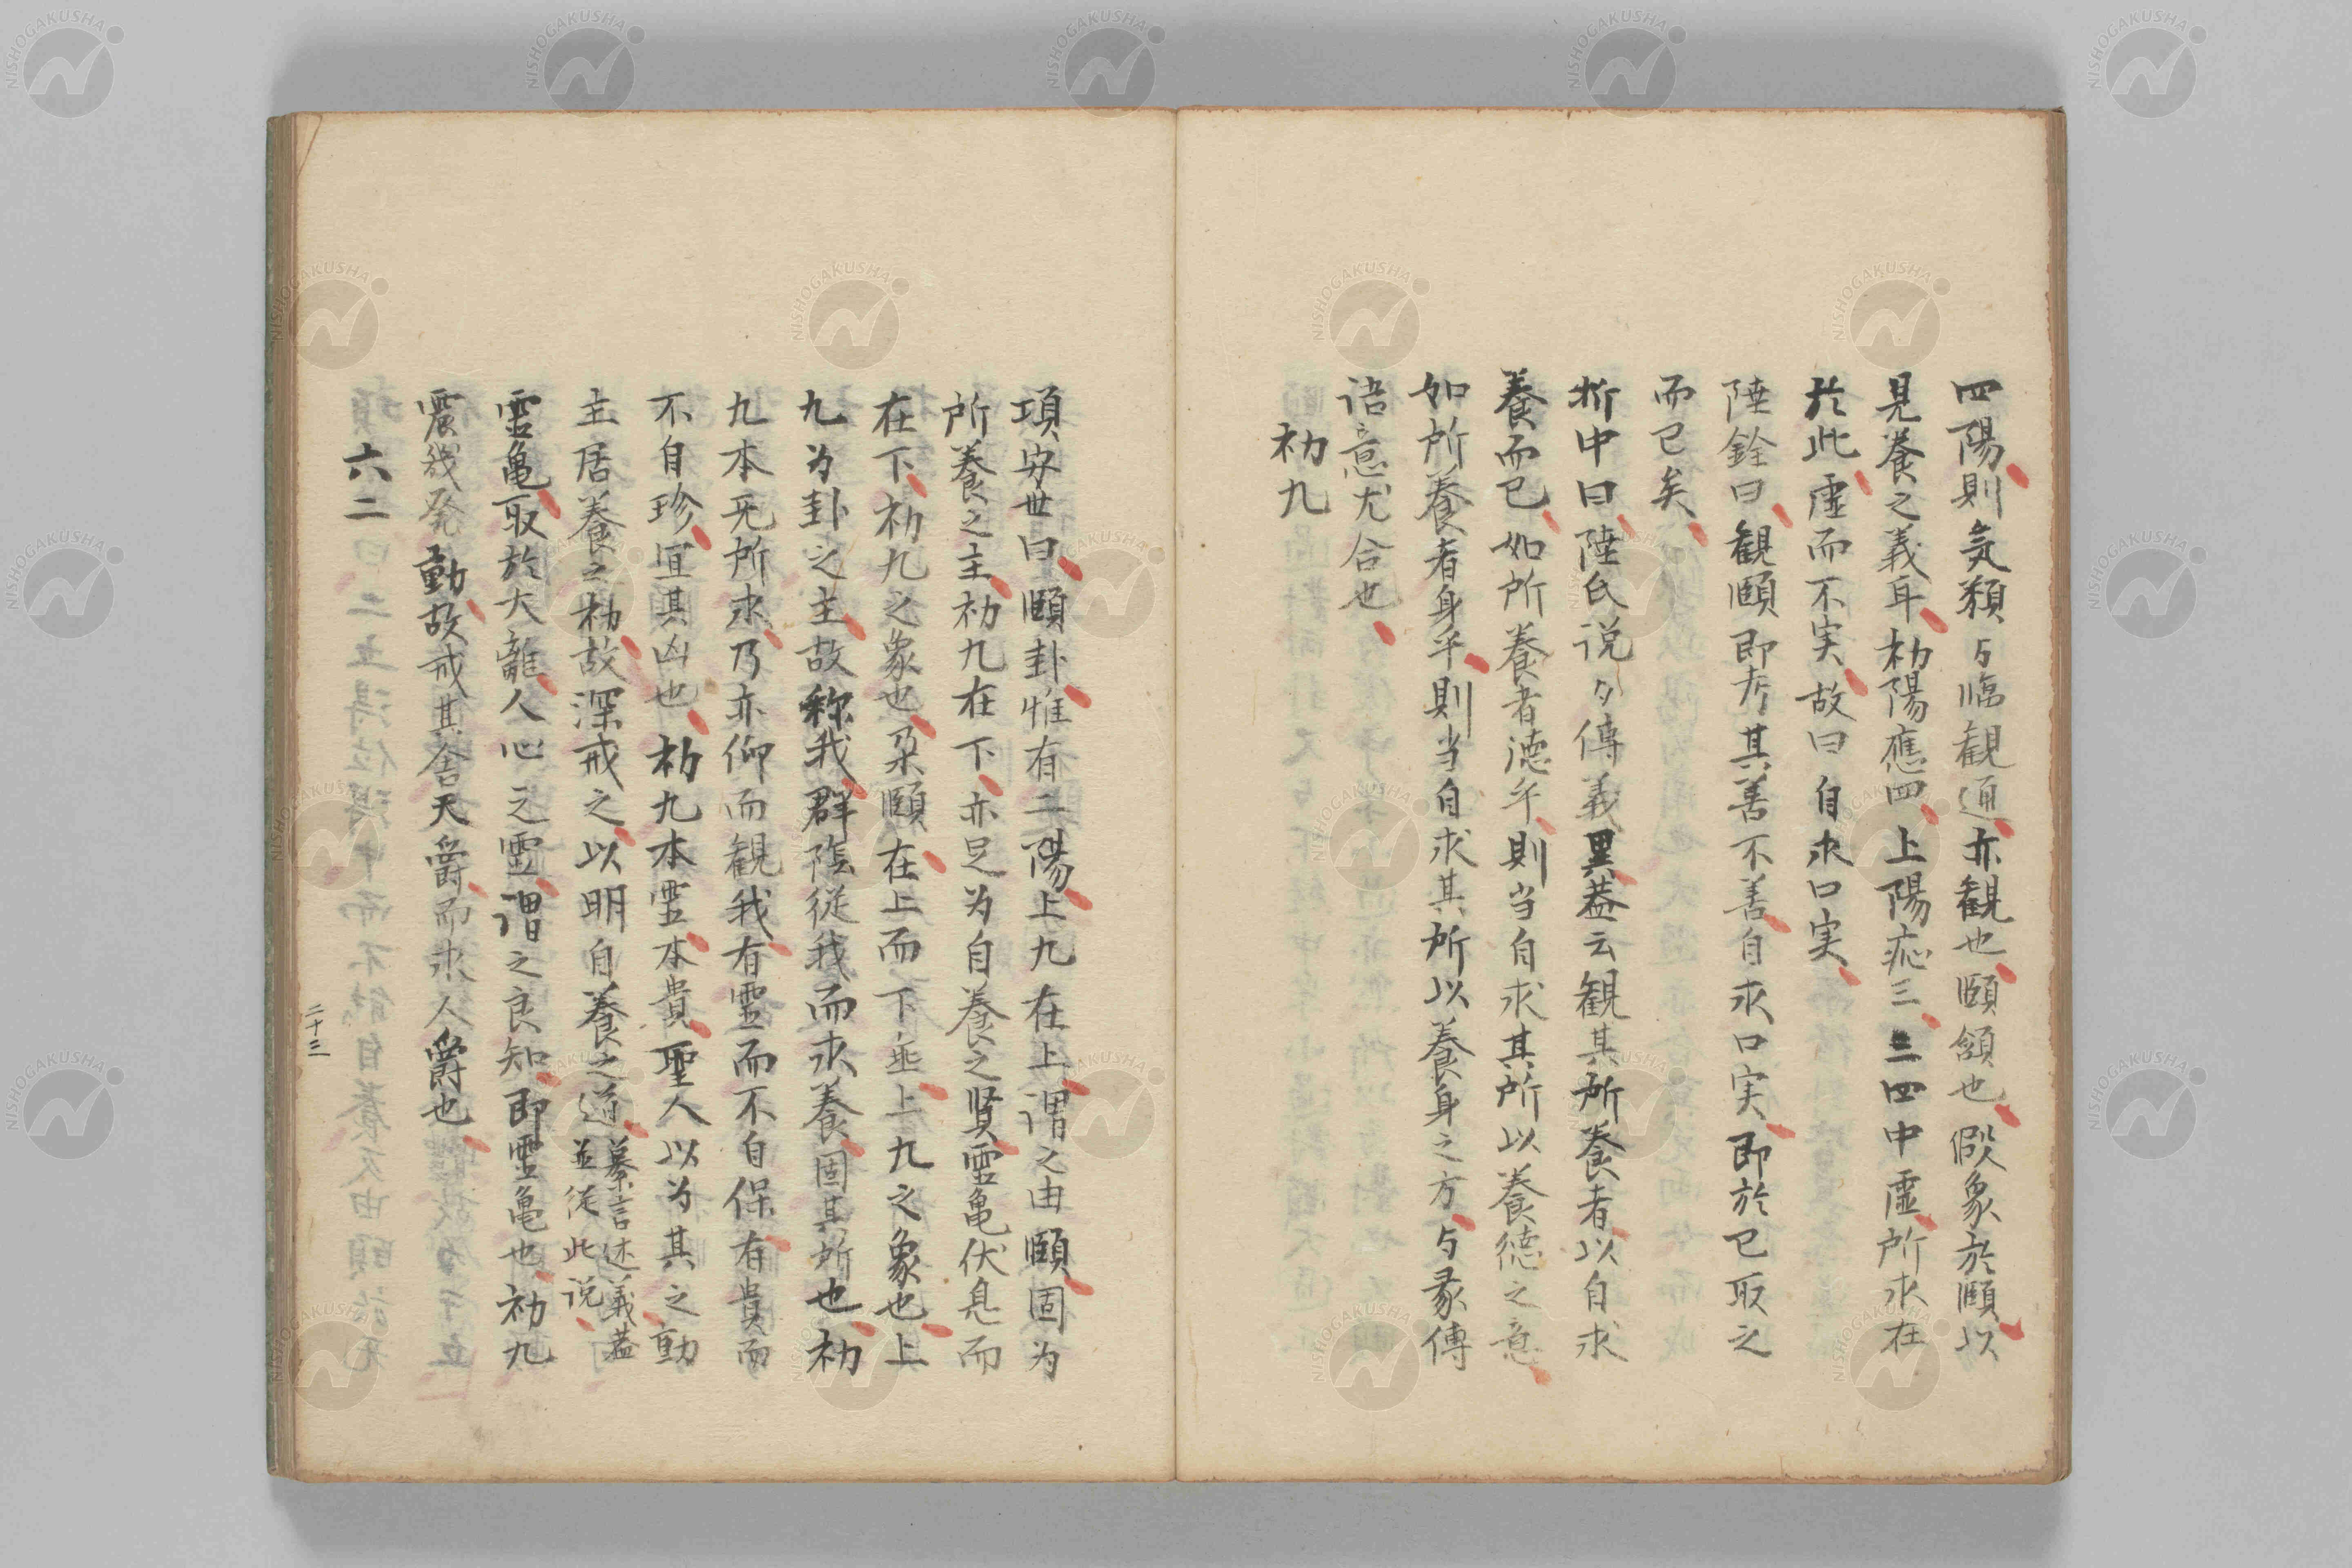 四陽則気類与臨観通亦観也頤頷也假象於頤以
見養之義耳初陽應四上陽応三三四中虚所求在
於此虚而不実故曰自求口実
陸銓曰観頤即考其善不善自求口実即於已取之
而已矣
折中曰陸氏説与傳義異蓋云観其所養者以自求
養而已如所養者徳乎則当自求其所以養徳之意
如所養者身乎則当自求其所以養身之方与彖傳
語意尤合也
初九
項安世曰頤卦惟有二陽上九在上謂之由頤固为
所養之主初九在下亦足为自養之賢霊亀伏息而
在下初九之象也朶頤在上而下垂上九之象也上
九为卦之主故称我群陰従我而求養固其所也初
九本无所求乃亦仰而観我有霊而不自保有貴而
不自珍宜其凶也初九本霊本貴聖人以为其之動
主居養之初故深戒之以明自養之道蒙言述義蓋
並従此説
霊亀取於大離人心之霊謂之良知即霊亀也初九
震幾発動故戒其舎天爵而求人爵也
六二
二十三
NISHOGAKUSHA